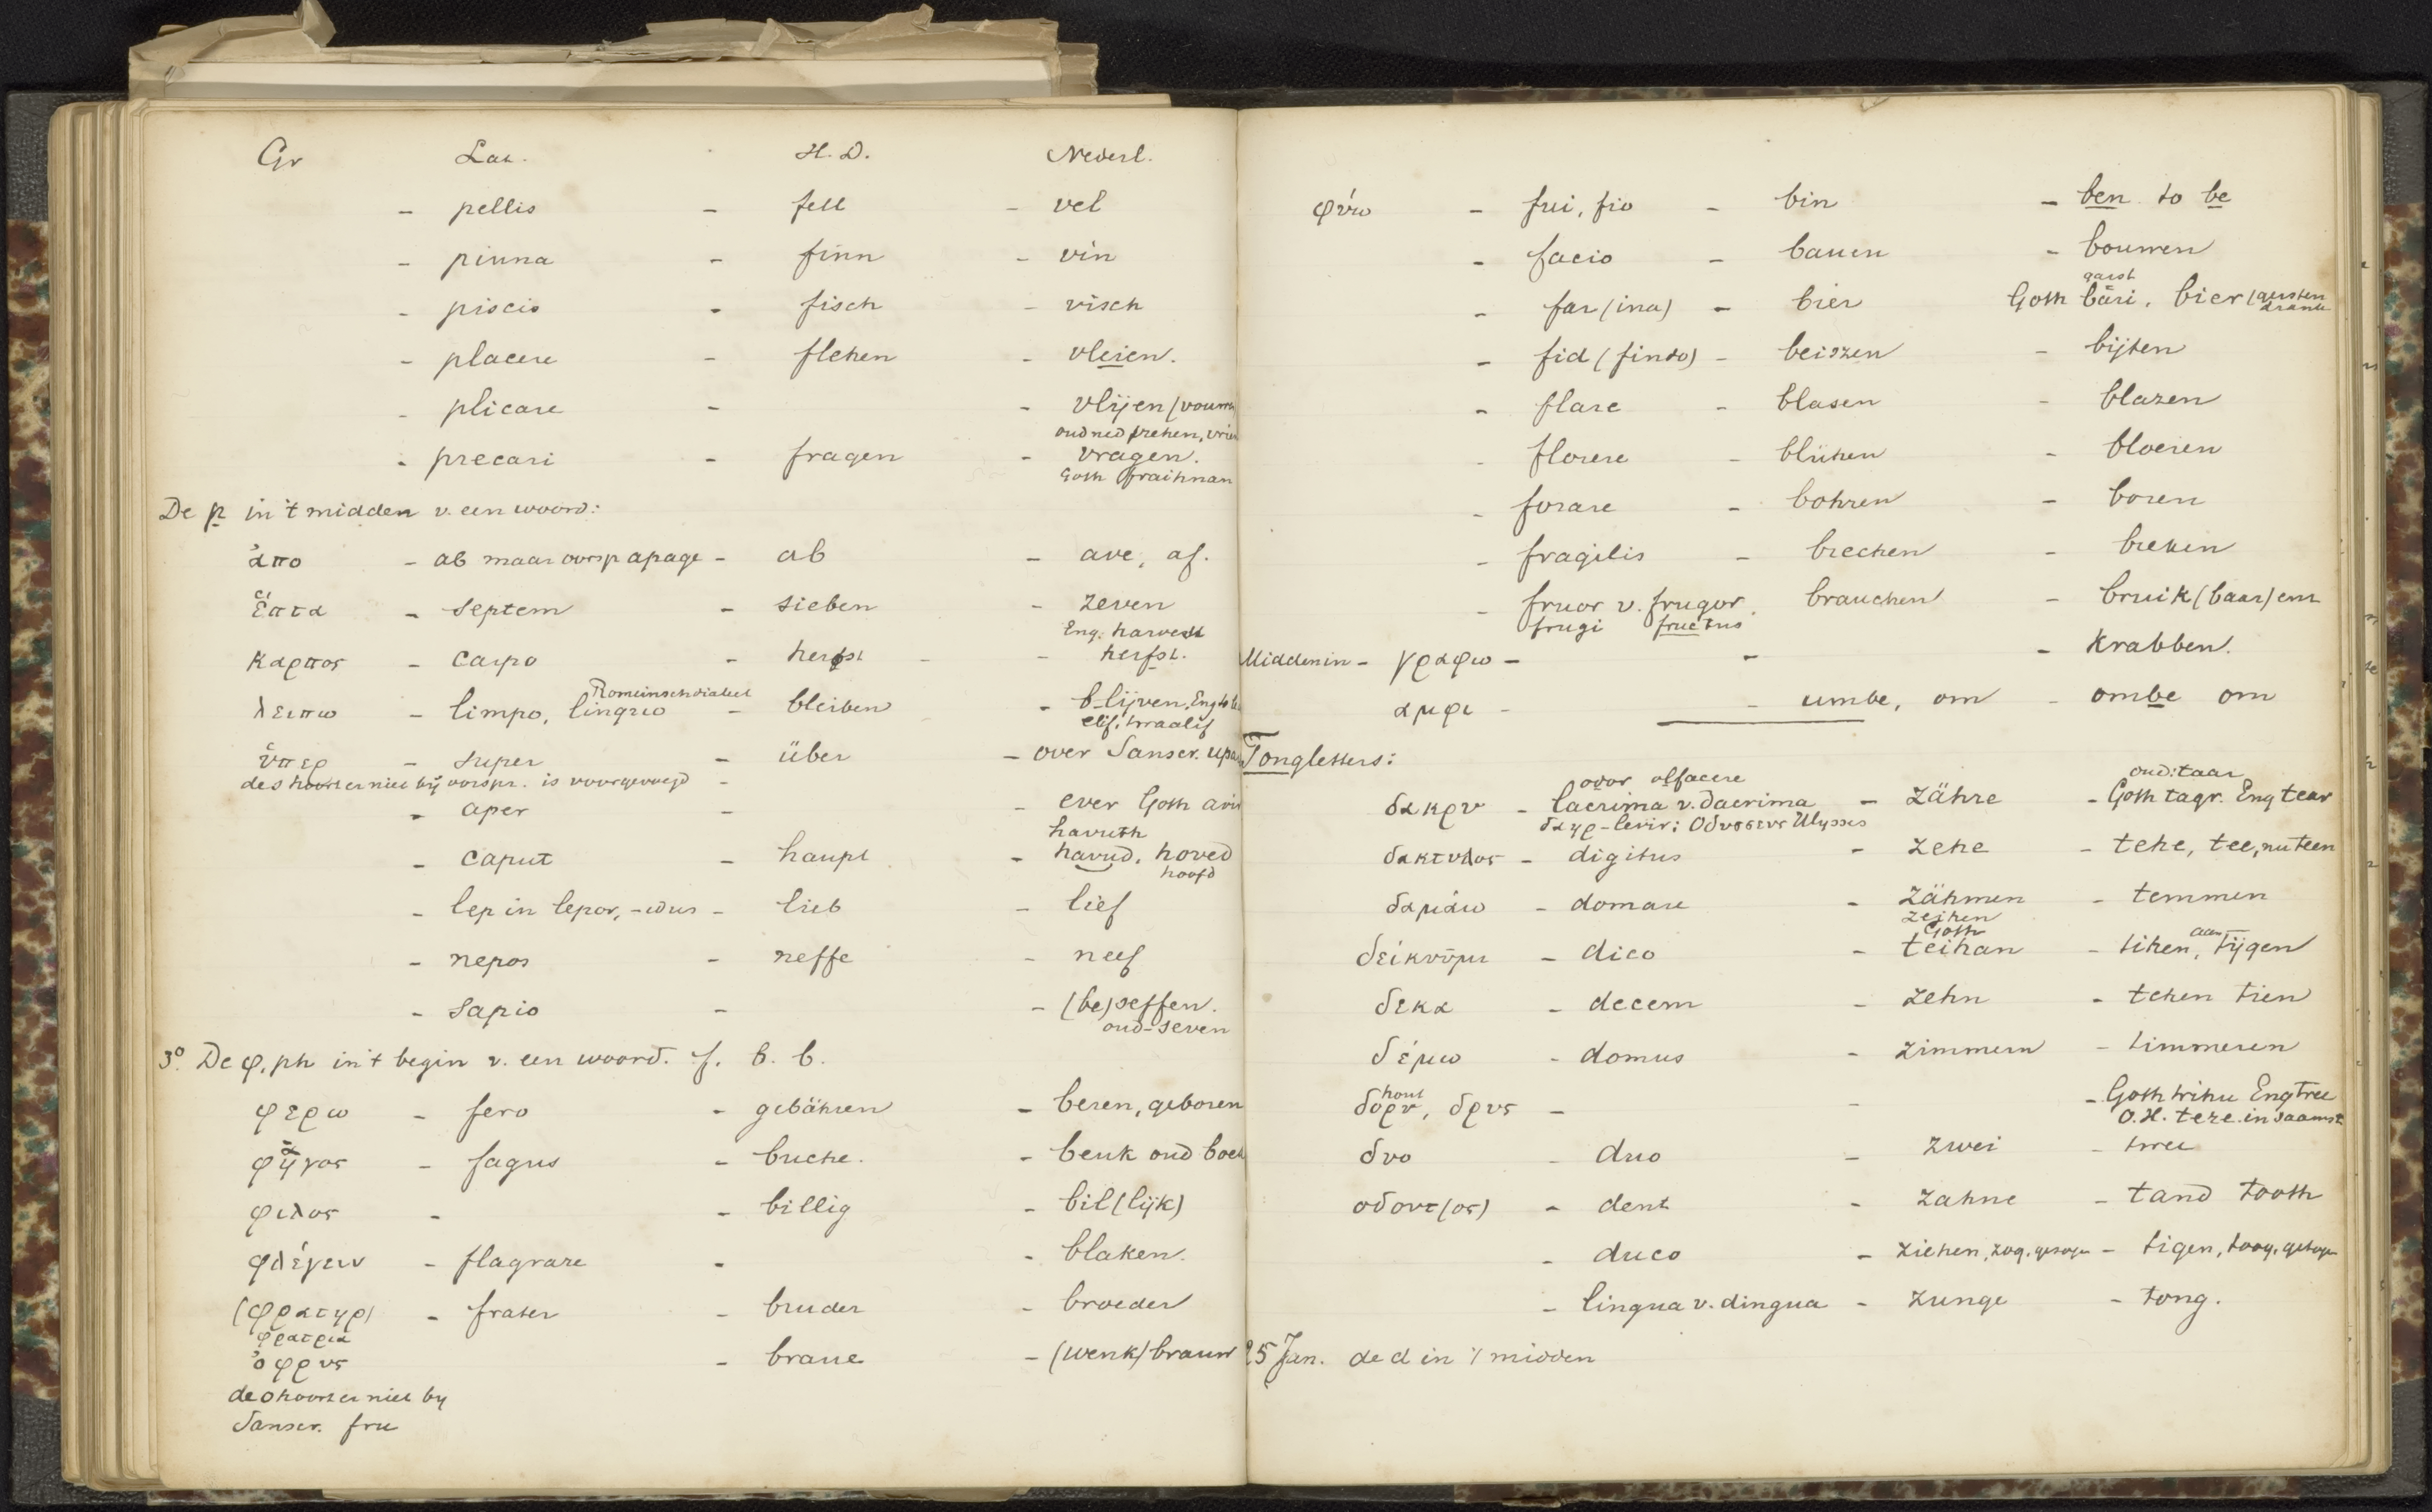 Gr Lat. H.D. Nederl.
- pellis - fell - vel
- pinna - finn - vin
- piscis - fisch - visch
- placere - flehen - vleien.
- plicare - - vlijen (vouwen
oud ned vrehen, vrien
- precari - fragen - vragen.
Goth fraihnan
De p in 't midden v. een woord:
ἀπο - ab maar oorsp apage - ab - ave, af.
ἑπτα - septem - sieben - zeven
Eng. harvest
καρπος - carpo - herfst - - herfst.
Romeinsch dialect
λειπω - limpo, linquo - bleiben - b-lijven, Eng to le
elif, twaalif
ὑπερ - super - über - over Sanscr. upa
de s hoort er niet bij oorspr. is voorgevoegd -
- aper - - ever Goth
havuth
- caput - haupt - havud, hoved
hoofd
- lep in lepor, -idus - lieb - lief
- nepos - neffe - neef
- sapio - - (be)seffen.
oud-seven
3° De φ, ph in 't begin v. een woord. f. b. b.
φερω - fero - gebähren - beren, geboren
φηγος - fagus - buche. - beuk oud boek
φιλος - - billig - bil(lijk)
φλέγειν - flagrare - - blaken.
(φρατηρ) - frater - bruder - broeder
φρατρια
ὀφρυς - braue - (wenk)brauw
de o hoort er niet by
Sanscr. fru
φύω - fui, fio - bin - ben to be
- facio - bauen - bouwen
garst
- far(ina) - bier Goth bari, bier (gersten
drank
- fid (findo) - beiszen - bijten
- flare - blasen - blazen
- florere - blühen - bloeien
- forare - bohren - boren
- fragilis - brechen - breken
- fruor v. frugor. brauchen - bruik(baar) enz
frugi fructus
Middenin - γραφω - - - krabben.
αμφι - - umbe, om - ombe om
Tongletters:
odor olfacere oud: taar
δακρυ - lacrima v. dacrima - zähre - Goth tagr. Eng tear
δαηρ - levir; Οδυσσευς Ulysses
δακτυλος - digitus - zehe - tehe, tee, nu teen
δαμάω - domare - zähmen - temmen
zeihen
Goth aan
δείκνυμι - dico - teihan - tihen, tijgen
δεκα - decem - zehn - tehen tien
δέμω - domus - zimmern - timmeren
hout
δορυ, δρυς - - - Goth trihu Eng tree
O.H. tere in saamst
δυο - duo - zwei - twee
οδοντ(ος) - dent - zahne - tand tooth
- duco - ziehen, zog, gezogen - tigen, toog, getogen
- lingua v. dingua - zunge - tong.
25 Jan. de d in 't midden